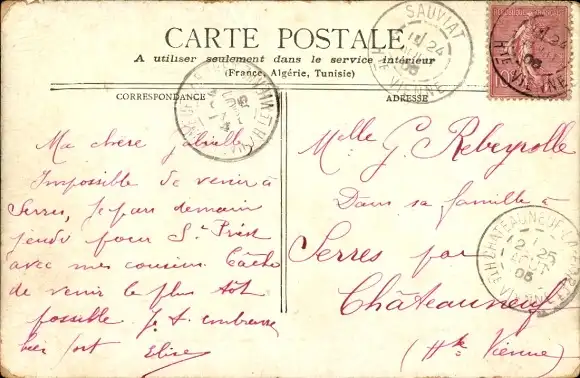 CARTE POSTALE
A utiliser seulement dans le service intérieur
(France, Algérie, Tunisie)
CORRESPONDANCE
Ma chère
Impossible de venir à
Serres, je pars demain
jeudi pour St Priest
avec mes cousins. Tâche
de venir le plus tôt
possible. Je t. embrasse
bien fort Elise
ADRESSE
Melle G. Rebeyrolle
Dans sa famille à
Serres par
Châteauneuf
(Hte Vienne)
SAUVIAT
24
05
HTE VIENNE
CHATEAUNEUF
25
AOUT
05
HTE VIENNE